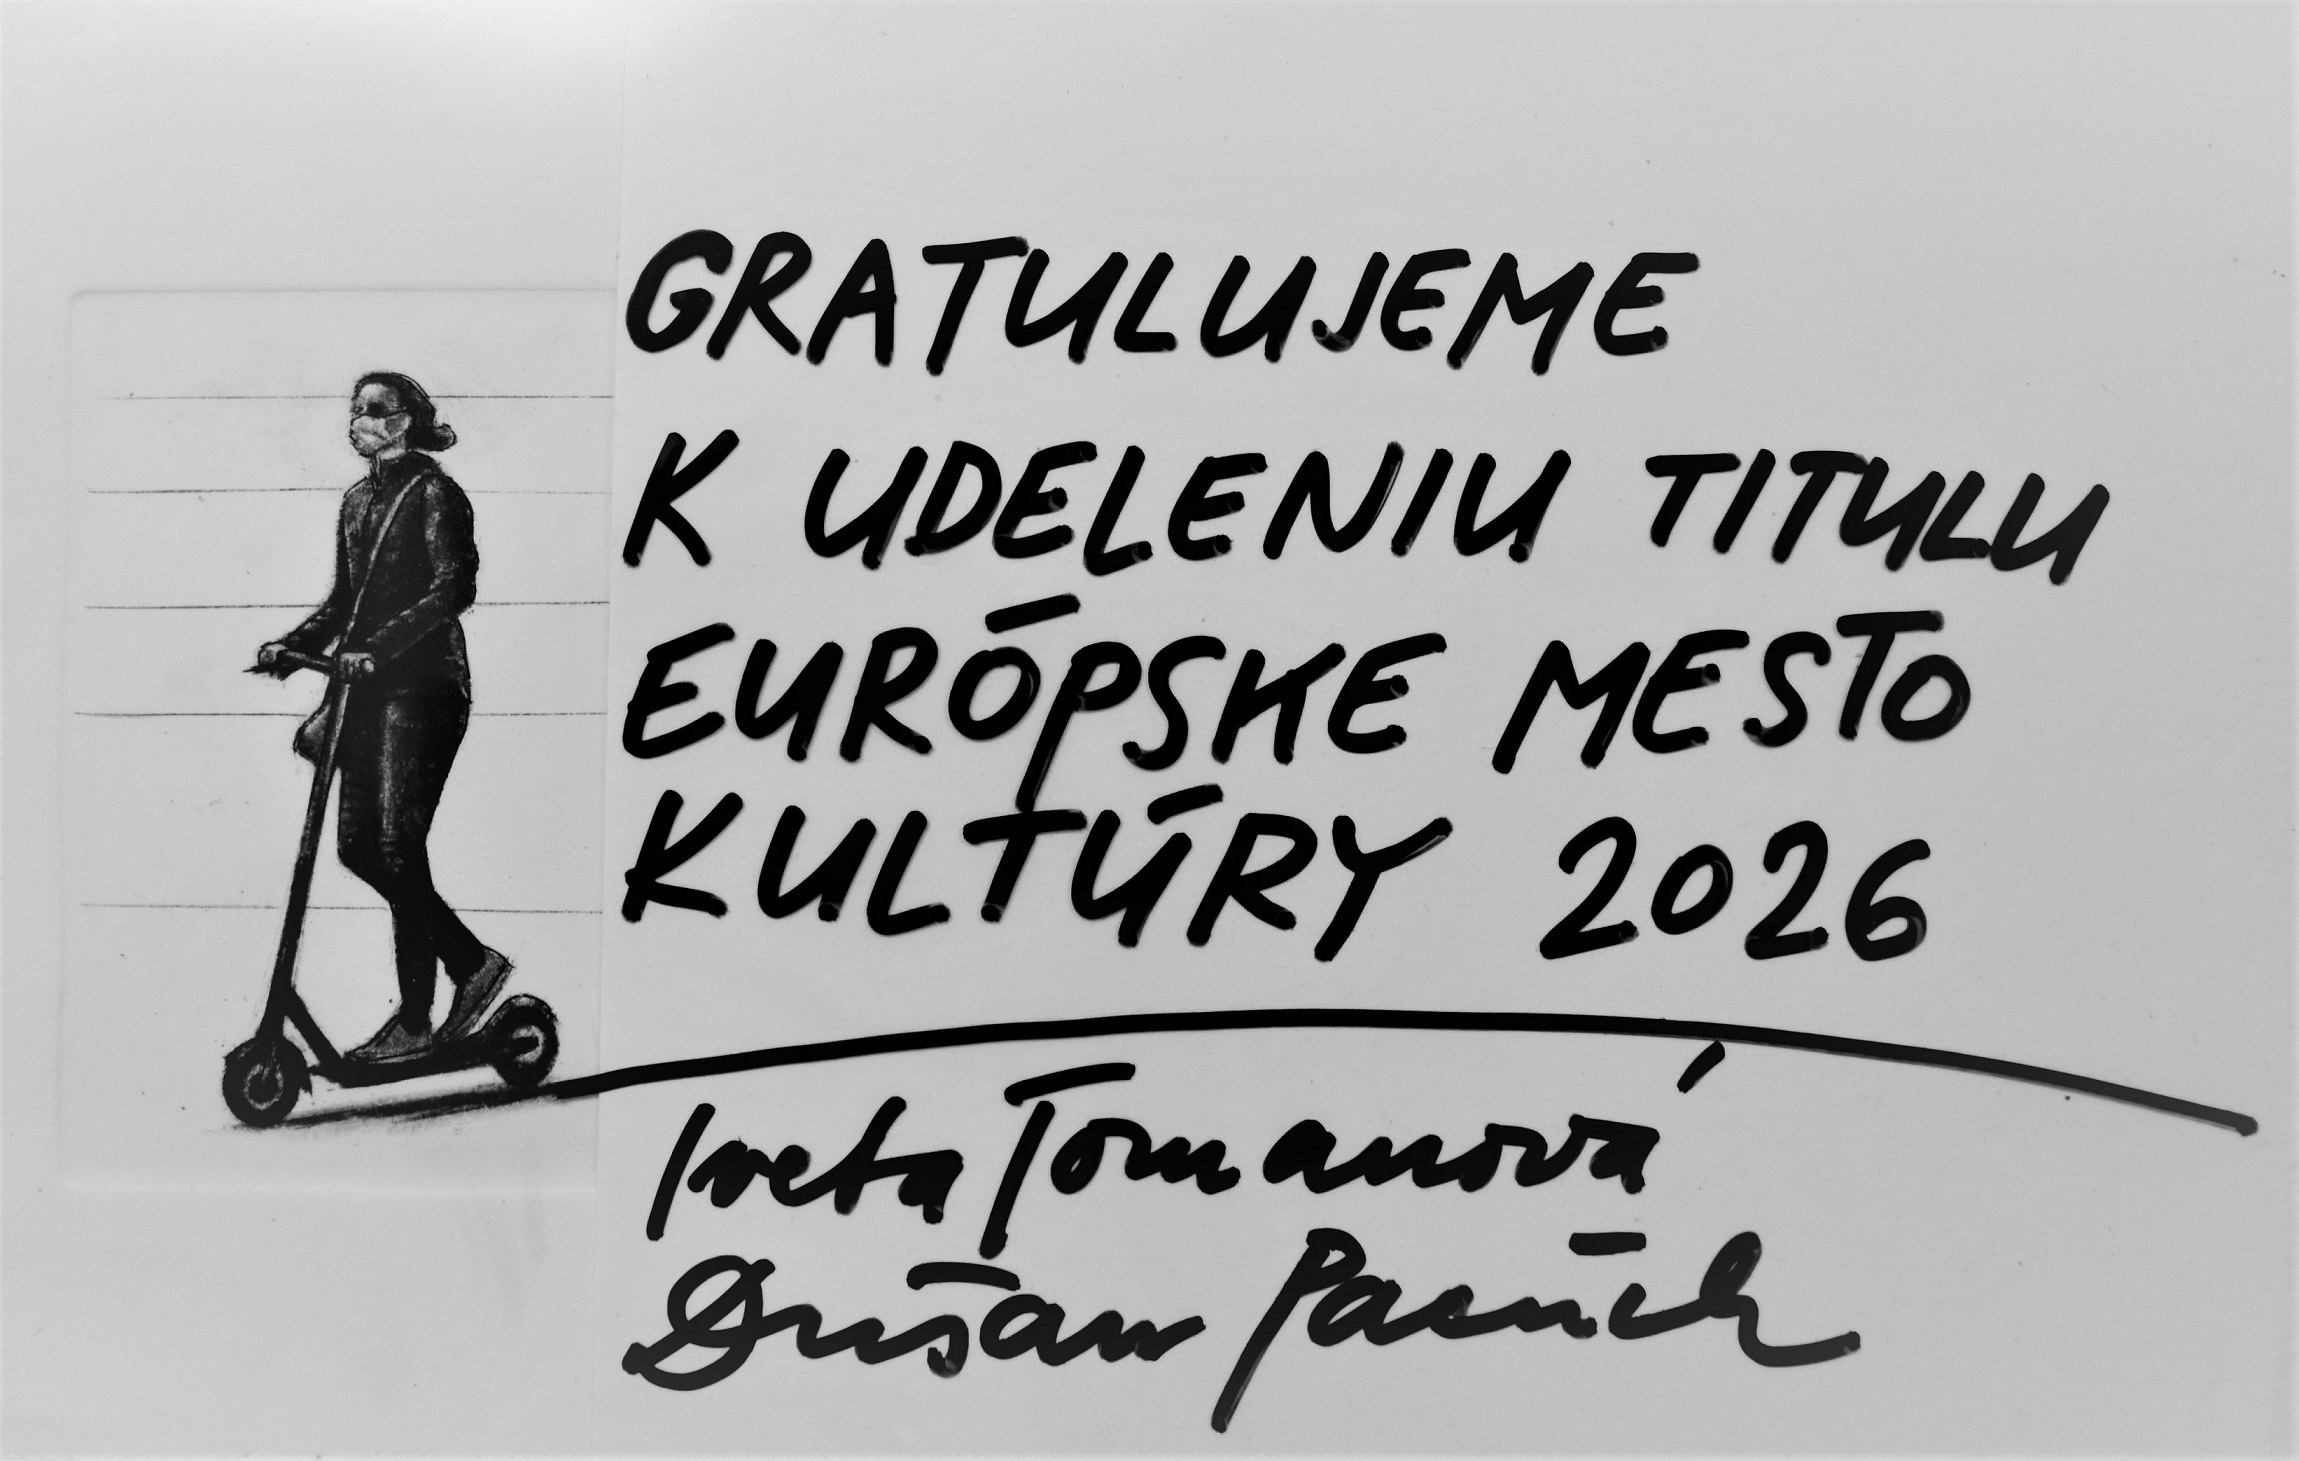 GRATULUJEME
K UDELENIU TITULU
EURÓPSKE MESTO
KULTÚRY 2026
Iveta Tomanová
Dušan